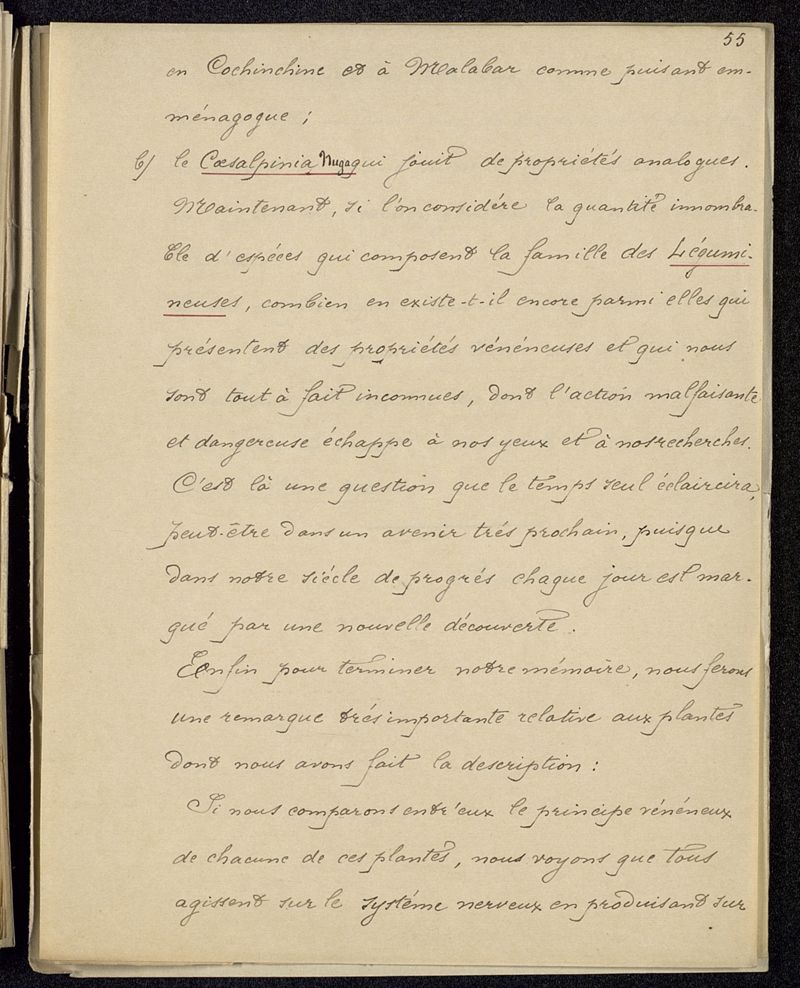 55
en Cochinchine et à Malabar comme puisant em-
ménagogue ;
b) le Cæsalpinia Nuga qui jouit de propriétés analogues.
Maintenant, si l'on considére la quantité innombra-
ble d'espéces qui composent la famille des Légumi-
neuses, combien en existe-t-il encore parmi elles qui
présentent des propriétés vénéneuses et qui nous
sont tout à fait inconnues, dont l'action malfaisante
et dangereuse échappe à nos yeux et à nos recherches.
C'est là une question que le temps seul éclaircira,
peut-être dans un avenir trés prochain, puisque
dans notre siécle de progrés chaque jour est mar-
qué par une nouvelle découverte.
Enfin pour terminer notre mémoire, nous ferons
une remarque trés importante relative aux plantes
dont nous avons fait la description :
Si nous comparons entr'eux le principe vénéneux
de chacune de ces plantes, nous voyons que tous
agissent sur le systéme nerveux en produisant sur